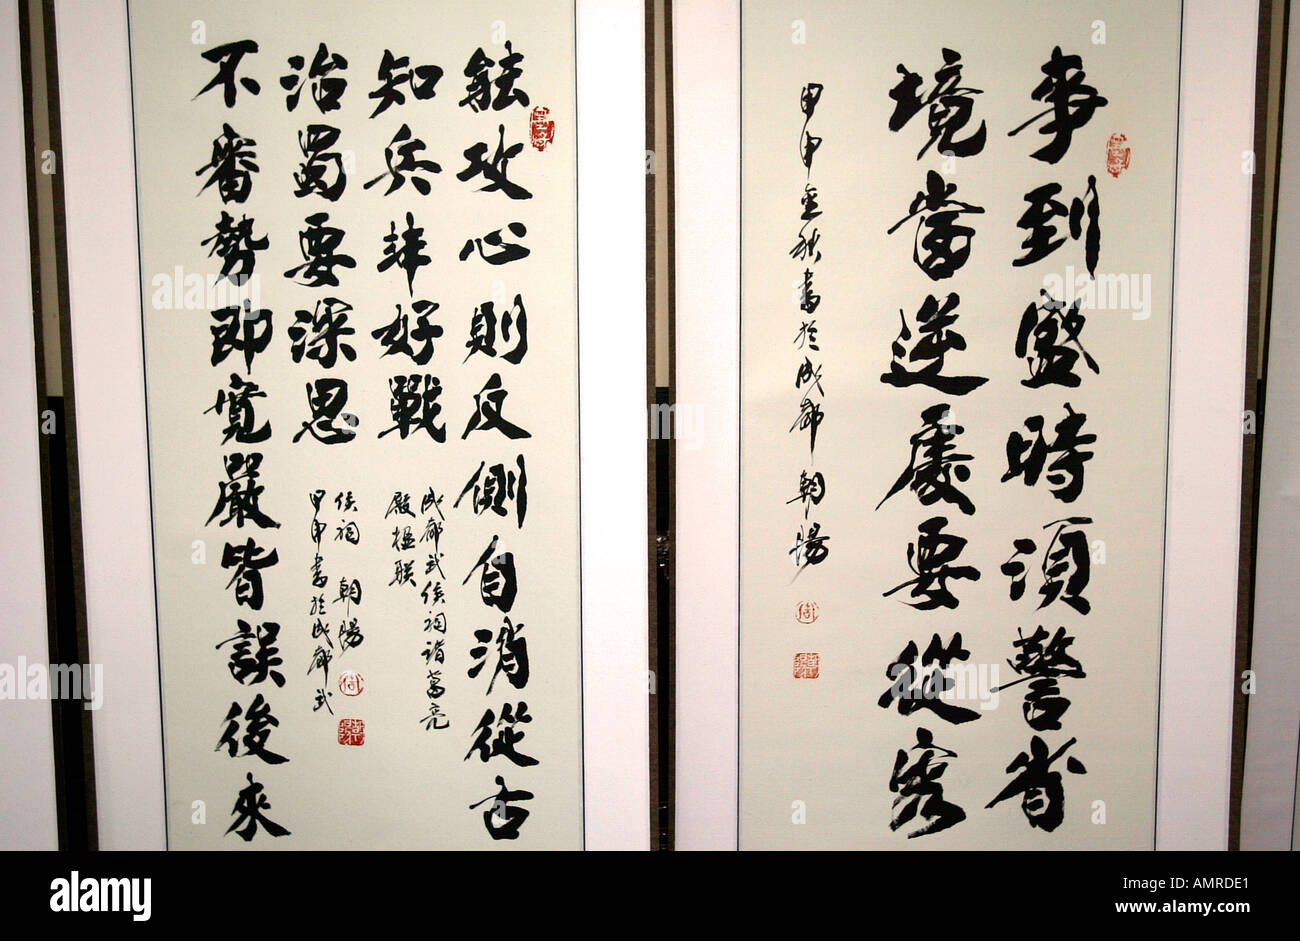 事到盛時須警省
境當逆處要從容
甲申金秋書於成都 朝陽
能攻心則反側自消從古
知兵非好戰
成都武侯祠諸葛亮
殿楹联
不審勢即寬嚴皆誤後來
治蜀要深思
甲申書於成都武
侯祠 朝陽
alamy
Image ID: AMRDE1
www.alamy.com